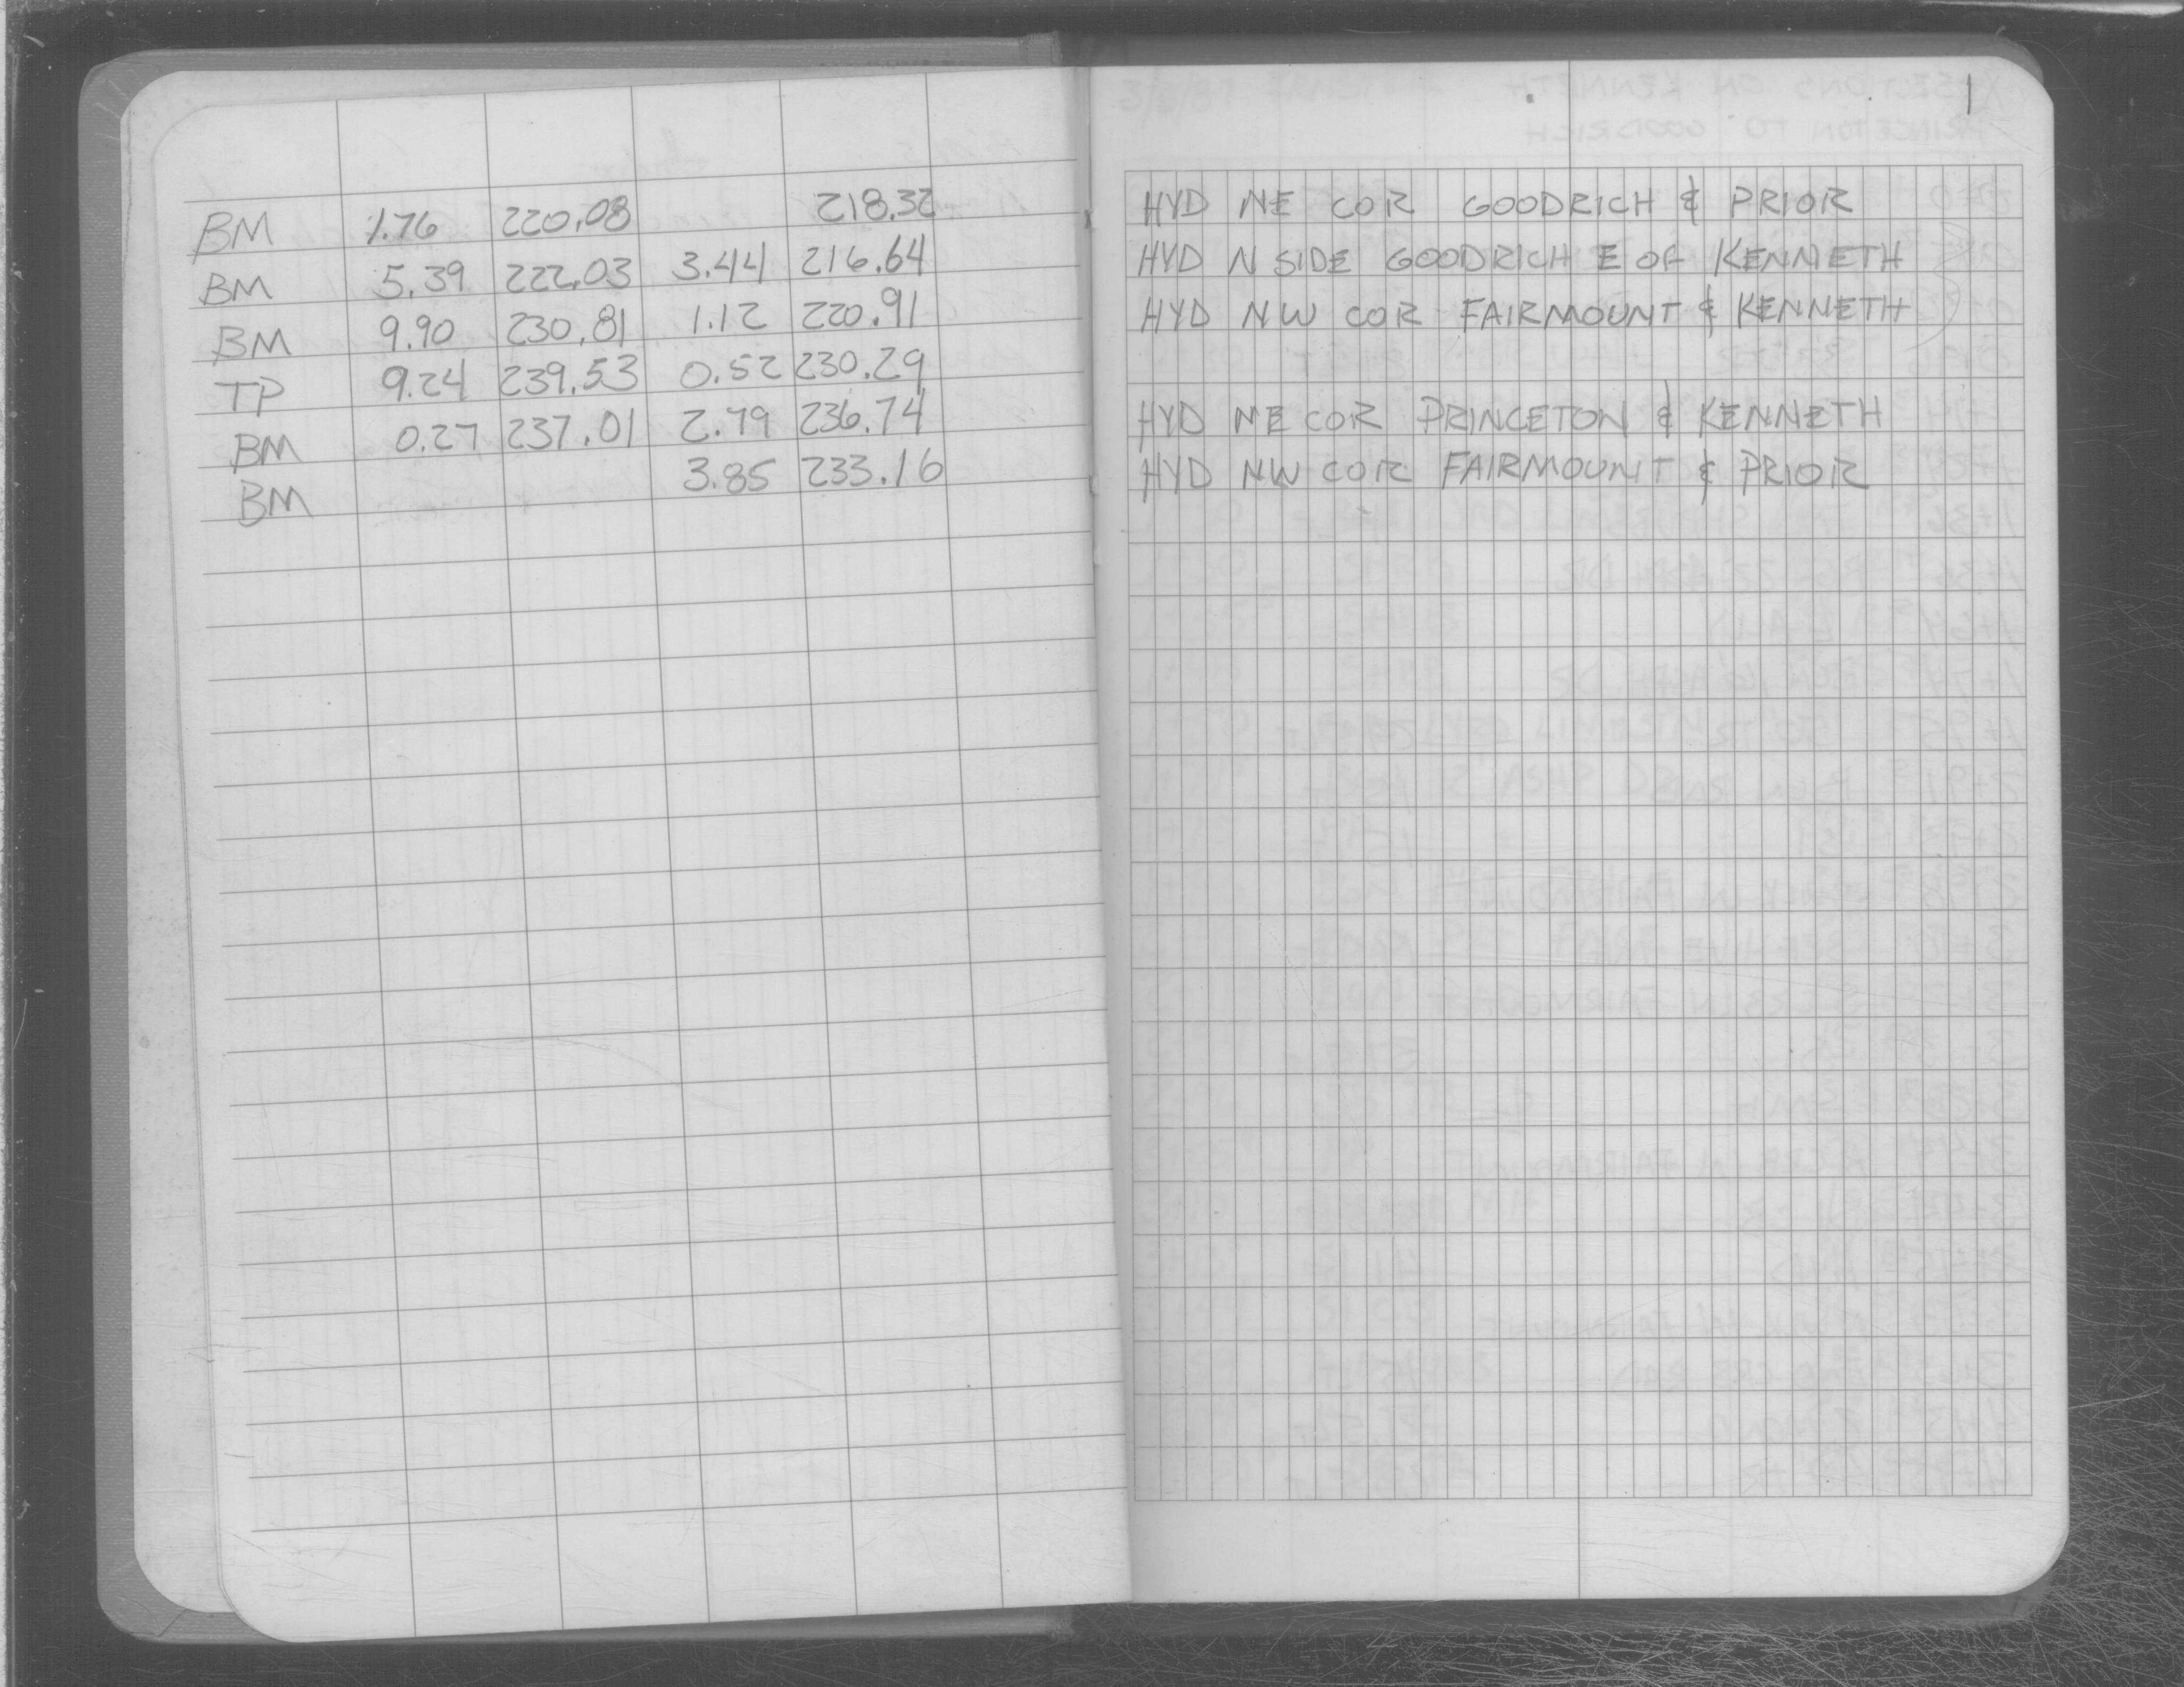 1
BM 1.76 220.08 218.32 HYD NE COR GOODRICH & PRIOR
BM 5.39 222.03 3.44 216.64 HYD N SIDE GOODRICH E OF KENNETH
BM 9.90 230.81 1.12 220.91 HYD NW COR FAIRMOUNT & KENNETH
TP 9.24 239.53 0.52 230.29
BM 0.27 237.01 2.79 236.74 HYD NE COR PRINCETON & KENNETH
BM 3.85 233.16 HYD NW COR FAIRMOUNT & PRIOR